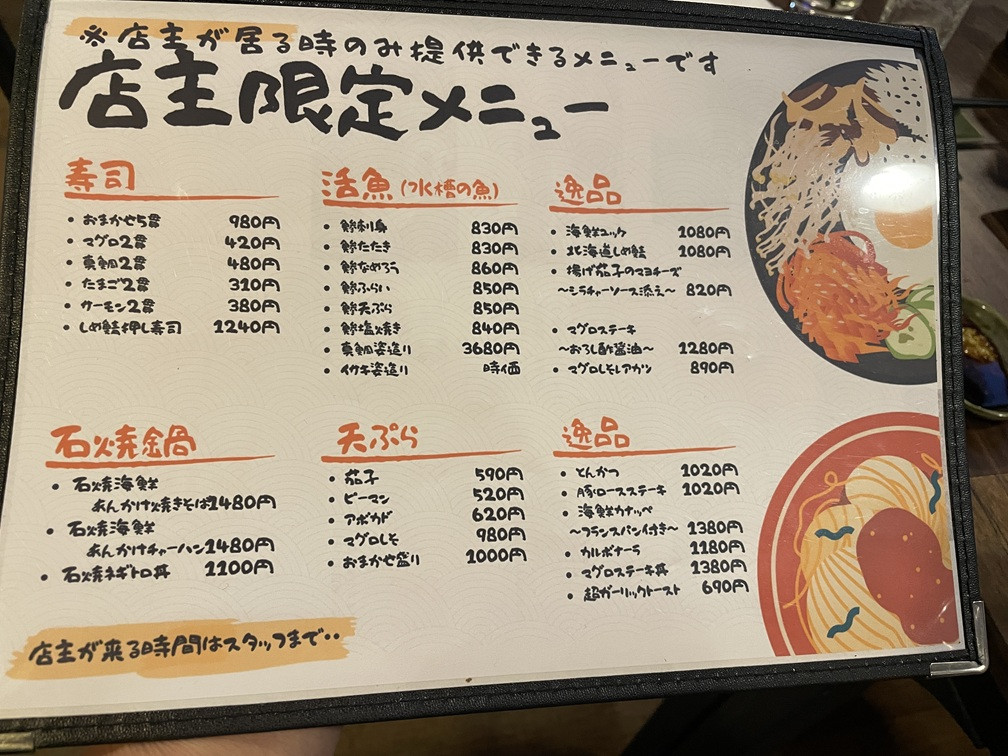 ※店主が居る時のみ提供できるメニューです
店主限定メニュー
寿司
• おまかせ5貫 980円
• マグロ2貫 420円
• 真鯛2貫 480円
• たまご2貫 310円
• サーモン2貫 380円
• しめ鯖押し寿司 1240円
活魚(水槽の魚)
• 鯵刺身 830円
• 鯵たたき 830円
• 鯵なめろう 860円
• 鯵ふらい 850円
• 鯵天ぷら 850円
• 鯵塩焼き 840円
• 真鯛姿造り 3680円
• イサキ姿造り 時価
逸品
• 海鮮ユッケ 1080円
• 北海道しめ鯖 1080円
• 揚げ茄子のマヨチーズ
〜シラチャーソース添え〜 820円
• マグロステーキ
〜おろし酢醤油〜 1280円
• マグロしそレアカツ 890円
石焼鍋
• 石焼海鮮
あんかけ焼きそば1480円
• 石焼海鮮
あんかけチャーハン1480円
• 石焼ネギトロ丼 1100円
天ぷら
• 茄子 590円
• ピーマン 520円
• アボカド 620円
• マグロしそ 980円
• おまかせ盛り 1000円
逸品
• とんかつ 1020円
• 豚ロースステーキ 1020円
• 海鮮カナッペ
〜フランスパン付き〜 1380円
• カルボナーラ 1180円
• マグロステーキ丼 1380円
• 超ガーリックトースト 690円
店主が来る時間はスタッフまで‥